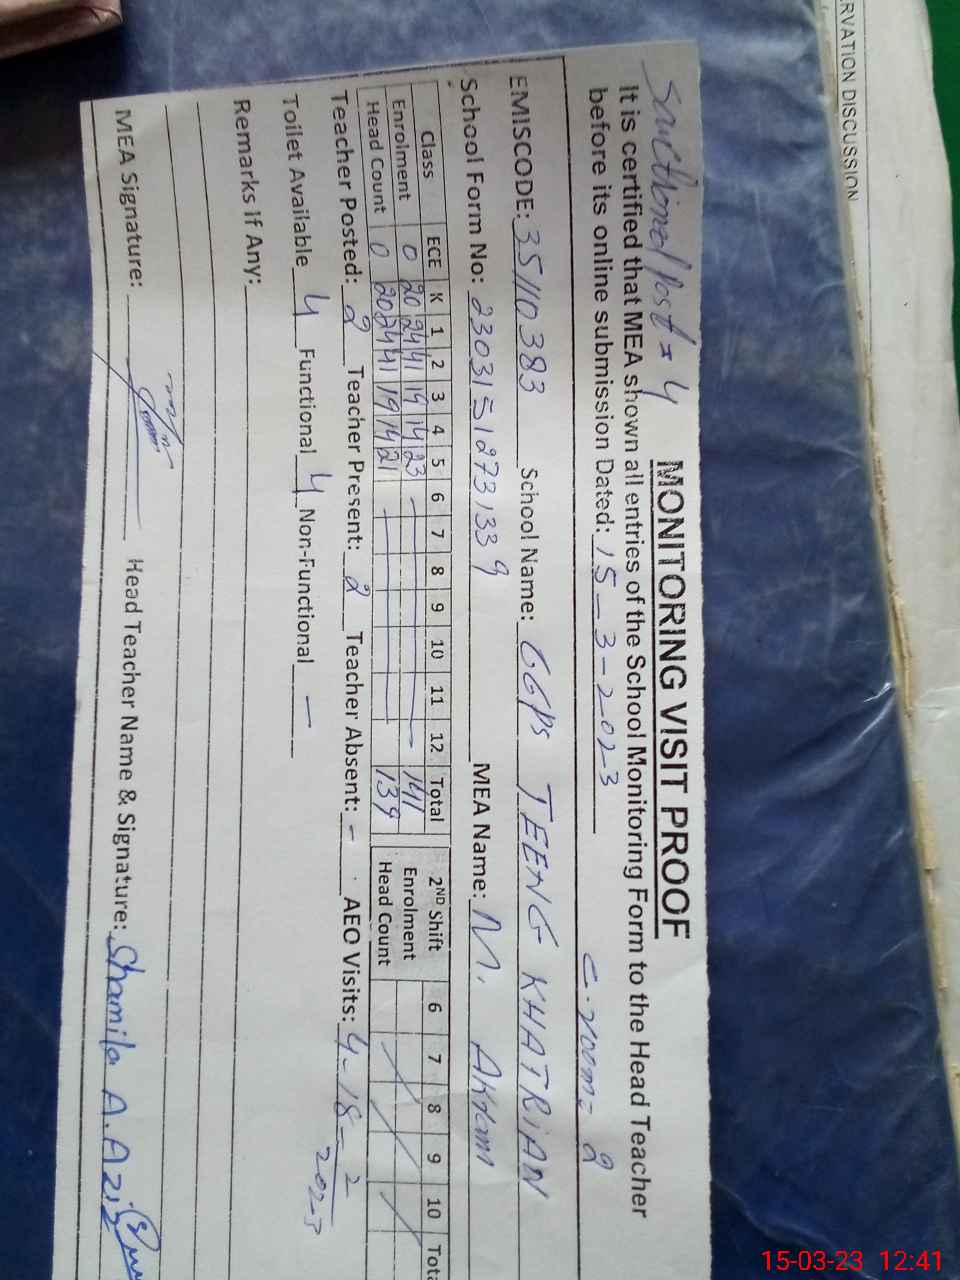 RVATION DISCUSSION
Sanctioned Post = 4
MONITORING VISIT PROOF
It is certified that MEA shown all entries of the School Monitoring Form to the Head Teacher
before its online submission Dated: 15-3-2023 C.room= 2
EMISCODE: 35110383 School Name: GGPS TEENG KHATRIAN
School Form No: 2303151273339 MEA Name: M. AKram
Class ECE K 1 2 3 4 5 6 7 8 9 10 11 12 Total 2ND Shift 6 7 8 9 10 Tota
Enrolment 0 20 24 41 19 14 23 141 Enrolment
Head Count 0 20 24 41 19 14 21 139 Head Count
Teacher Posted: 2 Teacher Present: 2 Teacher Absent: - AEO Visits: 4-18-2-2023
Toilet Available 4 Functional 4 Non-Functional -
Remarks If Any:
MEA Signature: Head Teacher Name & Signature: Shamila A.Aziz
15-03-23 12:41